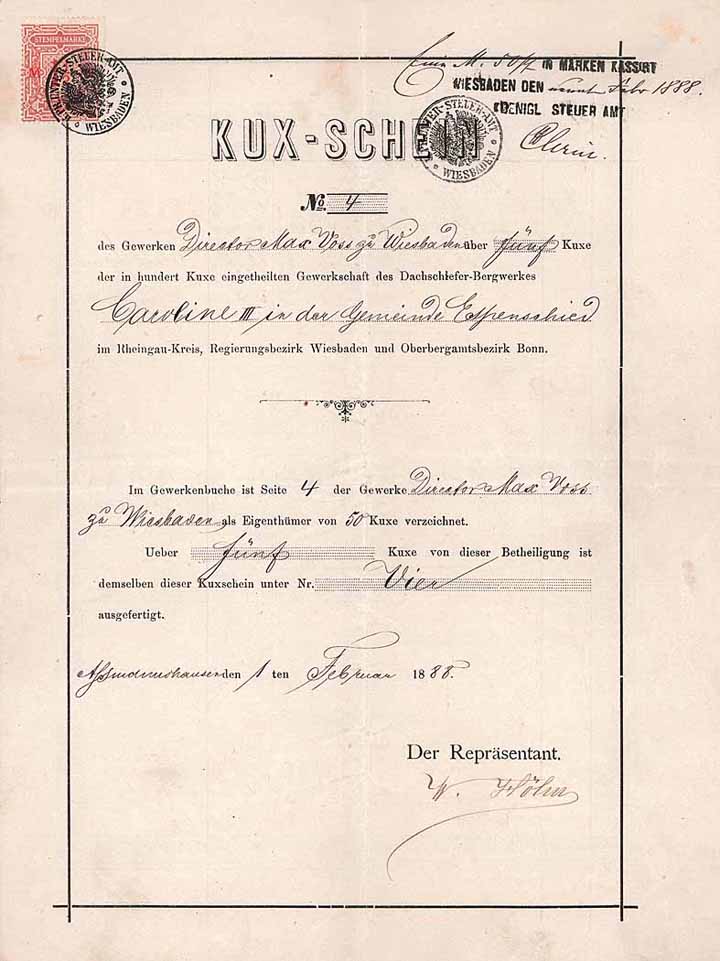 STEMPELMARKE
M
UNTER-STEUER-AMT
WIESBADEN
Eine M. 50 IN MARKEN KASSIRT
WIESBADEN DEN Febr 1888.
KOENIGL STEUER AMT
UNTER-STEUER-AMT
WIESBADEN
KUX-SCHEIN
No. 4
des Gewerken Director Max Voss zu Wiesbaden über fünf Kuxe
der in hundert Kuxe eingetheilten Gewerkschaft des Dachschiefer-Bergwerkes
Caroline III in der Gemeinde Espenschied
im Rheingau-Kreis, Regierungsbezirk Wiesbaden und Oberbergamtsbezirk Bonn.
Im Gewerkenbuche ist Seite 4 der Gewerke Director Max Voss
zu Wiesbaden als Eigenthümer von 50 Kuxe verzeichnet.
Ueber fünf Kuxe von dieser Betheiligung ist
demselben dieser Kuxschein unter Nr. Vier
ausgefertigt.
Assmannshausen den 1 ten Februar 1888.
Der Repräsentant.
W.